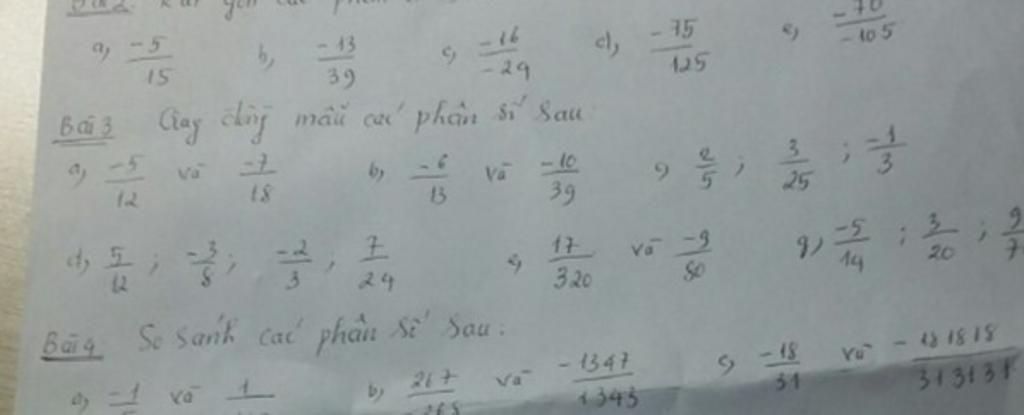 Bài 2. Rút gọn các phân
a, -5/15 b, -13/39 c, -16/-24 d, -75/125 e, -70/-105
Bài 3 Quy đồng mẫu các phân số sau:
a, -5/12 và -7/18 b, -6/13 và -10/39 c, 2/5 ; 3/25 ; -1/3
d, 5/12 ; -3/8 ; -2/3 , 7/24 e, 17/320 và -9/80 g, -5/14 ; 3/20 ; 9/7
Bài 4 So sánh các phân số sau:
a, -1 và 1 b, 267 và -1347/1343 c, -18/31 và -181818/313131